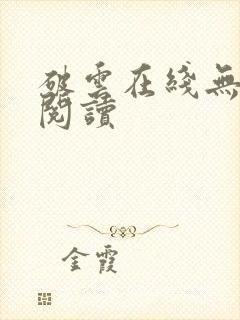 破雲在綫無
閱讀
金霞